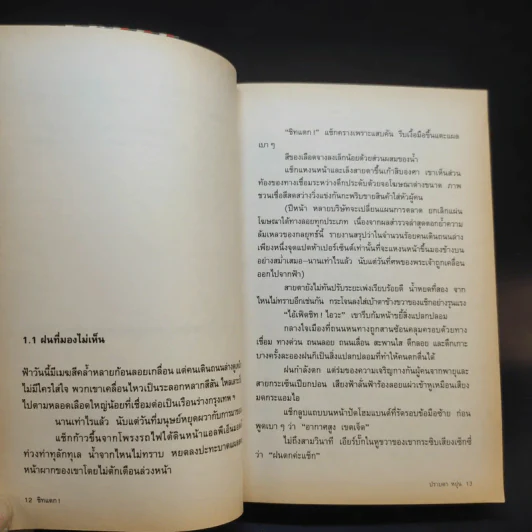 1.1 ฝนที่มองไม่เห็น
ฟ้าวันนี้มีเมฆสีคล้ำหลายก้อนลอยเกลื่อน แต่คนเดินถนนล่าง
ไม่มีใครใส่ใจ พวกเขาเคลื่อนไหวเป็นระลอกหลากสีสัน
ไปตามหลอดเลือดใหญ่น้อยที่เชื่อมต่อเป็นเรือนร่างกรุงเทพฯ
นานเท่าไรแล้ว นับแต่วันที่มนุษย์หยุดผวากับการมา
แช็กก้าวขึ้นจากโพรงรถไฟใต้ดินหน้าแอลพีเอ็ม
ท่วงท่าทุลักทุเล น้ำจากไหนไม่ทราบ หยดลงปะทะบาด
หน้าผากของเขาโดยไม่ตักเตือนล่วงหน้า
12 ชิทแตก!
“ชิทแตก!” แช็กครางเพราะแสบคัน รีบเงื้อมือขึ้นแตะแผล
เบาๆ
สีของเลือดจางลงเล็กน้อยด้วยส่วนผสมของน้ำ
แช็กแหงนหน้าและเล็งสายตาขึ้นเก้าสิบองศา เขาเห็นส่วน
ท้องของทางเชื่อมระหว่างตึกประดับด้วยจอโฆษณาล่างขนาด ภาพ
ชวนเชื่อสีสดสว่างวิ่งแข่งกันกะพริบขายสินค้าใส่หัวผู้คน
(ปีหน้า หลายบริษัทจะเปลี่ยนแผนการตลาด ยกเลิกแผ่น
โฆษณาใต้ทางลอยทุกประเภท เนื่องจากผลสำรวจล่าสุดตอกย้ำความ
ล้มเหลวของกลยุทธ์นี้ รายงานสรุปว่าในจำนวนร้อยคนเดินถนนล่าง
เพียงหนึ่งจุดแปดห้าเปอร์เซ็นต์เท่านั้นที่จะแหงนหน้าขึ้นมองข้างบน
อย่างสม่ำเสมอ–นานเท่าไรแล้ว นับแต่วันที่ศพของพระเจ้าถูกเคลื่อน
ออกไปจากฟ้า)
สายตายังไม่ทันปรับระยะเพ่งเรียบร้อยดี น้ำหยดที่สอง จาก
ไหนไม่ทราบอีกเช่นกัน กระโจนลงใส่เบ้าตาข้างขวาของแช็กอย่างรุนแรง
“ไอ้เฟิดชิท! ไอวะ” เขารีบก้มหน้าขยี้สิ่งแปลกปลอม
กลางใจเมืองที่ถนนหนทางถูกสานซ้อนคลุมครอบด้วยทาง
เชื่อม ทางด่วน ถนนลอย ถนนเลื่อน สะพานใส ตึกลอย และตึกเกาะ
บางครั้งละอองฝนก็เป็นสิ่งแปลกปลอมที่ทำให้คนตกตื่นได้
ฝนกำลังตก แต่ร่มของความเจริญกางกันผู้คนจากพายุและ
สายกระเซ็นเปียกปอน เสียงฟ้าลั่นฟ้าร้องลอยแผ่วเข้าหูเหมือนเสียง
มดกระแอมไอ
แช็กลูบแถบบนหน้าปัดโฮมแบนด์ที่รัดรอบข้อมือซ้าย ก่อน
พูดเบาๆ ว่า “อากาศสูง เขตเจ็ด”
ไม่ถึงสามวินาที เอียร์บั๊กในหูขวาของเขากระซิบเสียงเซ็กซี่
ว่า “ฝนตกค่ะแช็ก”
ปราบดา หยุ่น 13